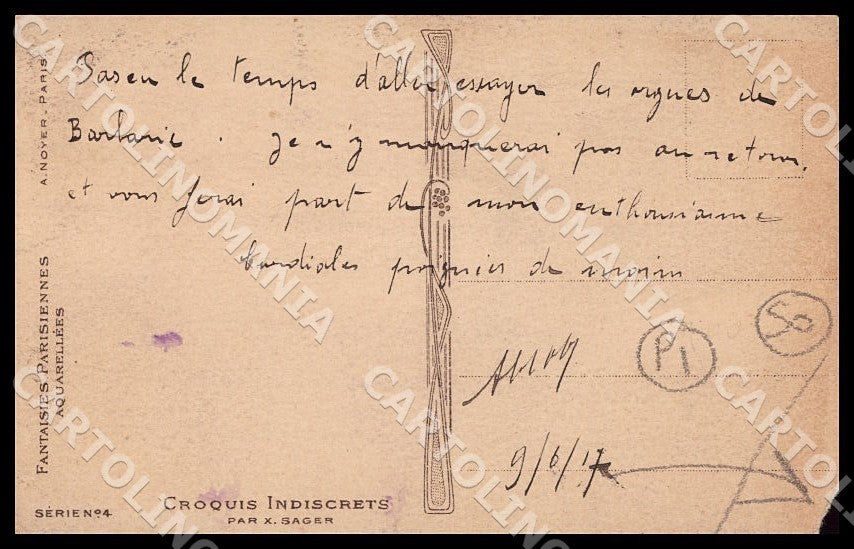 Pas eu le temps d'aller essayer les orgues de
Barbarie. Je n'y manquerai pas au retour.
et vous ferai part de mon enthousiasme
Cordiales poignées de mains
9/6/17
P1
50
A. NOYER - PARIS
FANTAISIES PARISIENNES
AQUARELLÉES
SÉRIE Nº4
CROQUIS INDISCRETS
PAR X. SAGER
CARTOLINOMANIA
CARTOLINOMANIA
CARTOLINOMANIA
CARTOLINOMANIA
CARTOLINOMANIA
CARTOLINOMANIA